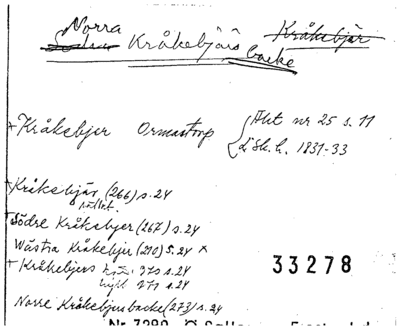 Norra
Södra Kråkebjärs backe Kråkebjär
+ Kråkebjer Ormastorp { Akt nr 25 s. 11
L.Sk.h. 1831-33
+ Kråkebjär (266) s. 24
Södre Kråkebjer (267) s. 24
Wästra Kråkebjer (210) s. 24 x
+ Kråkebjers 270 s. 24
271 s. 24
33278
Norre Kråkebjersbacke (273) s. 24